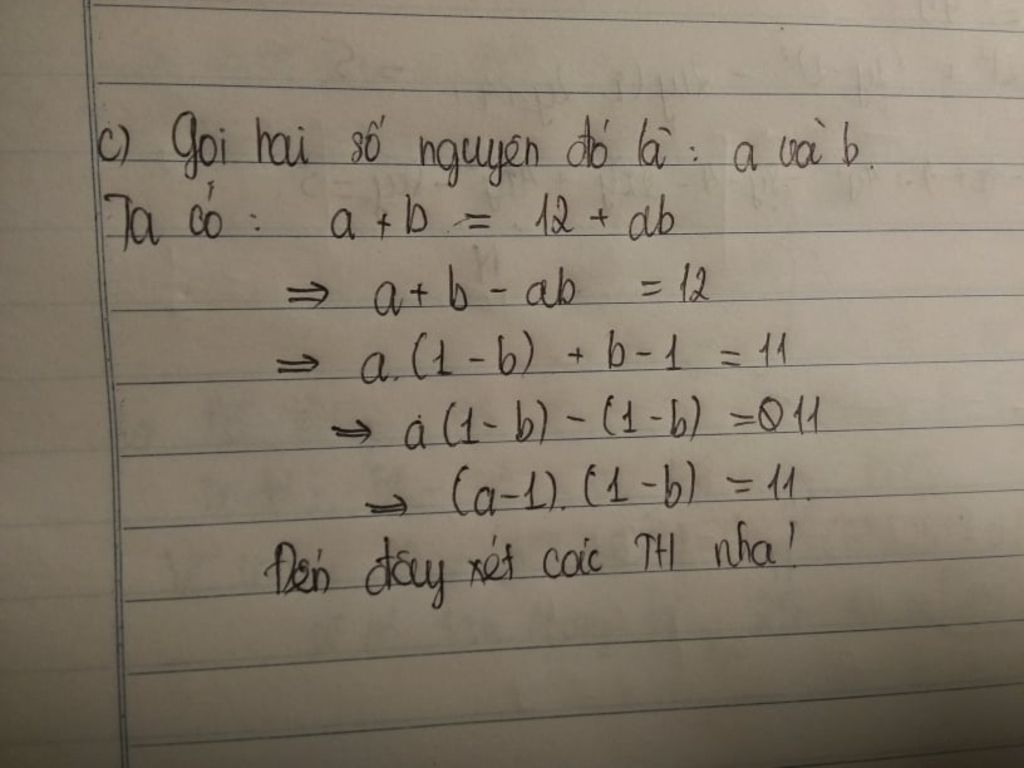 c) Gọi hai số nguyên đó là : a và b.
Ta có : a + b = 12 + ab
⇒ a + b - ab = 12
⇒ a.(1 - b) + b - 1 = 11
⇒ a(1 - b) - (1 - b) = 11
⇒ (a - 1).(1 - b) = 11.
Đến đây xét các TH nha!